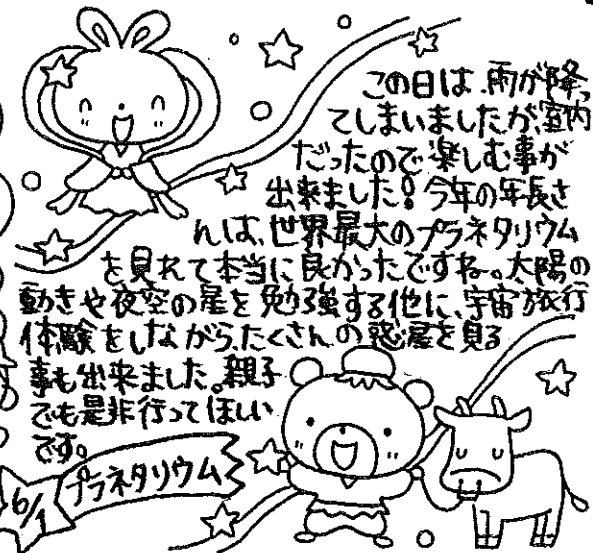 この日は、雨が降っ
てしまいましたが、室内
だったので楽しむ事が
出来ました！今年の年長さ
んは、世界最大のプラネタリウム
を見れて本当に良かったですね。太陽の
動きや夜空の星を勉強する他に、宇宙旅行
体験をしながら、たくさんの惑星を見る
事も出来ました。親子
でも是非行ってほしい
です。
6/1 プラネタリウム